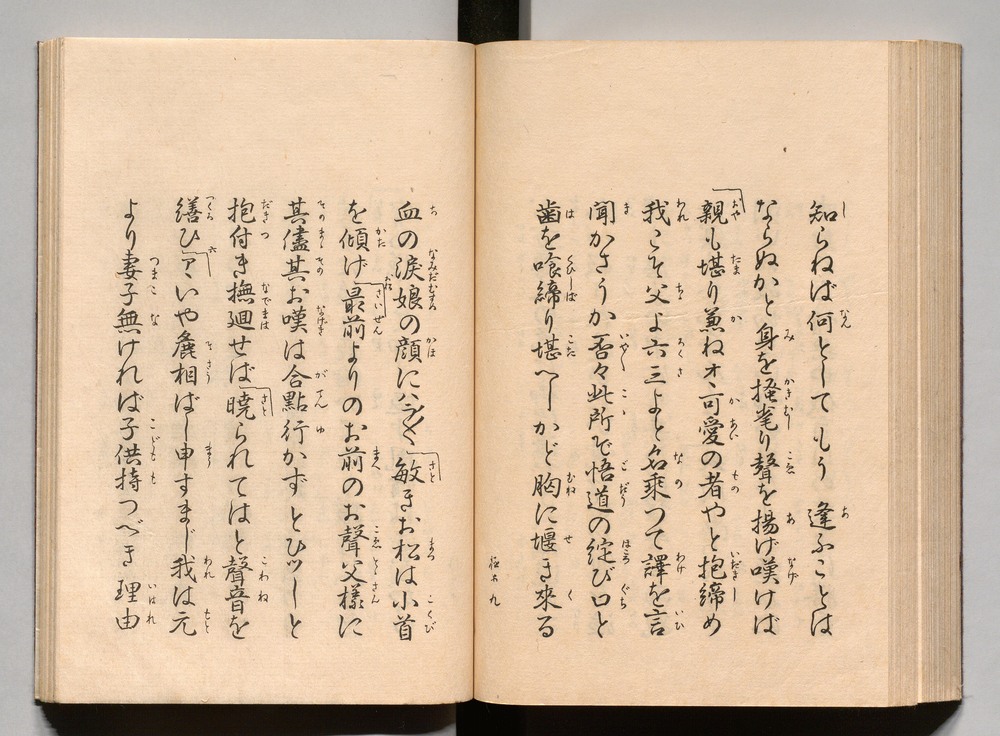 知らねば何としてもう逢ふことは
ならぬかと身を掻毟り聲を揚げ嘆けば
親も堪り兼ねオヽ可愛の者やと抱締め
我こそ父よ六三よと名乘つて譯を言
聞かさうか否々此所で悟道の綻び口と
歯を喰締り堪へしかど胸に堰き來る
血の涙娘の顔にハラ〳〵敏きお松は小首
を傾げ最前よりのお前のお聲父樣に
其儘其お嘆は合點行かずとひツしと
抱付き撫廻せば曉られてはと聲音を
繕ひアヽいや麁相ばし申すまじ我は元
より妻子無ければ子供持つべき理由